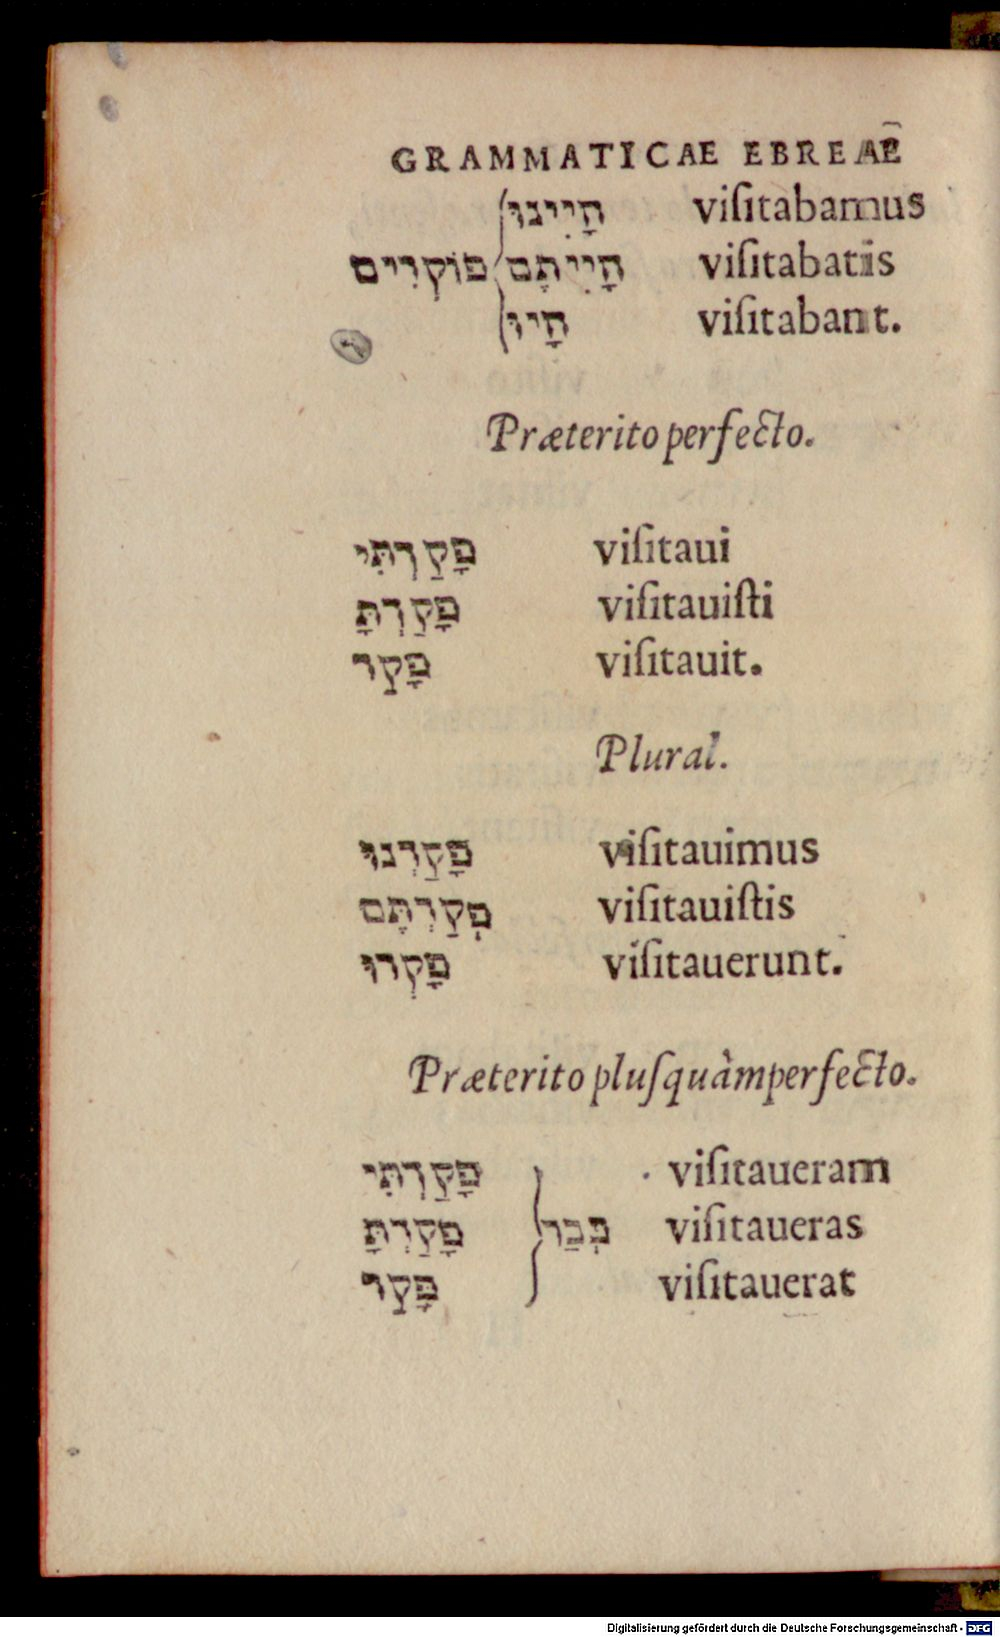 GRAMMATICAE EBREAE
הָיִינוּ visitabamus
הָיִיתֶם פוֹקְדִים visitabatis
הָיוּ visitabant.
Præterito perfecto.
פָּקַדְתִּי visitaui
פָּקַדְתָּ visitauisti
פָּקַד visitauit.
Plural.
פָּקַדְנוּ visitauimus
פְּקַדְתֶּם visitauistis
פָּקְדוּ visitauerunt.
Præterito plusquàmperfecto.
פָּקַדְתִּי visitaueram
כְּבַר פָּקַדְתָּ visitaueras
פָּקַד visitauerat
Digitalisierung gefördert durch die Deutsche Forschungsgemeinschaft - DFG